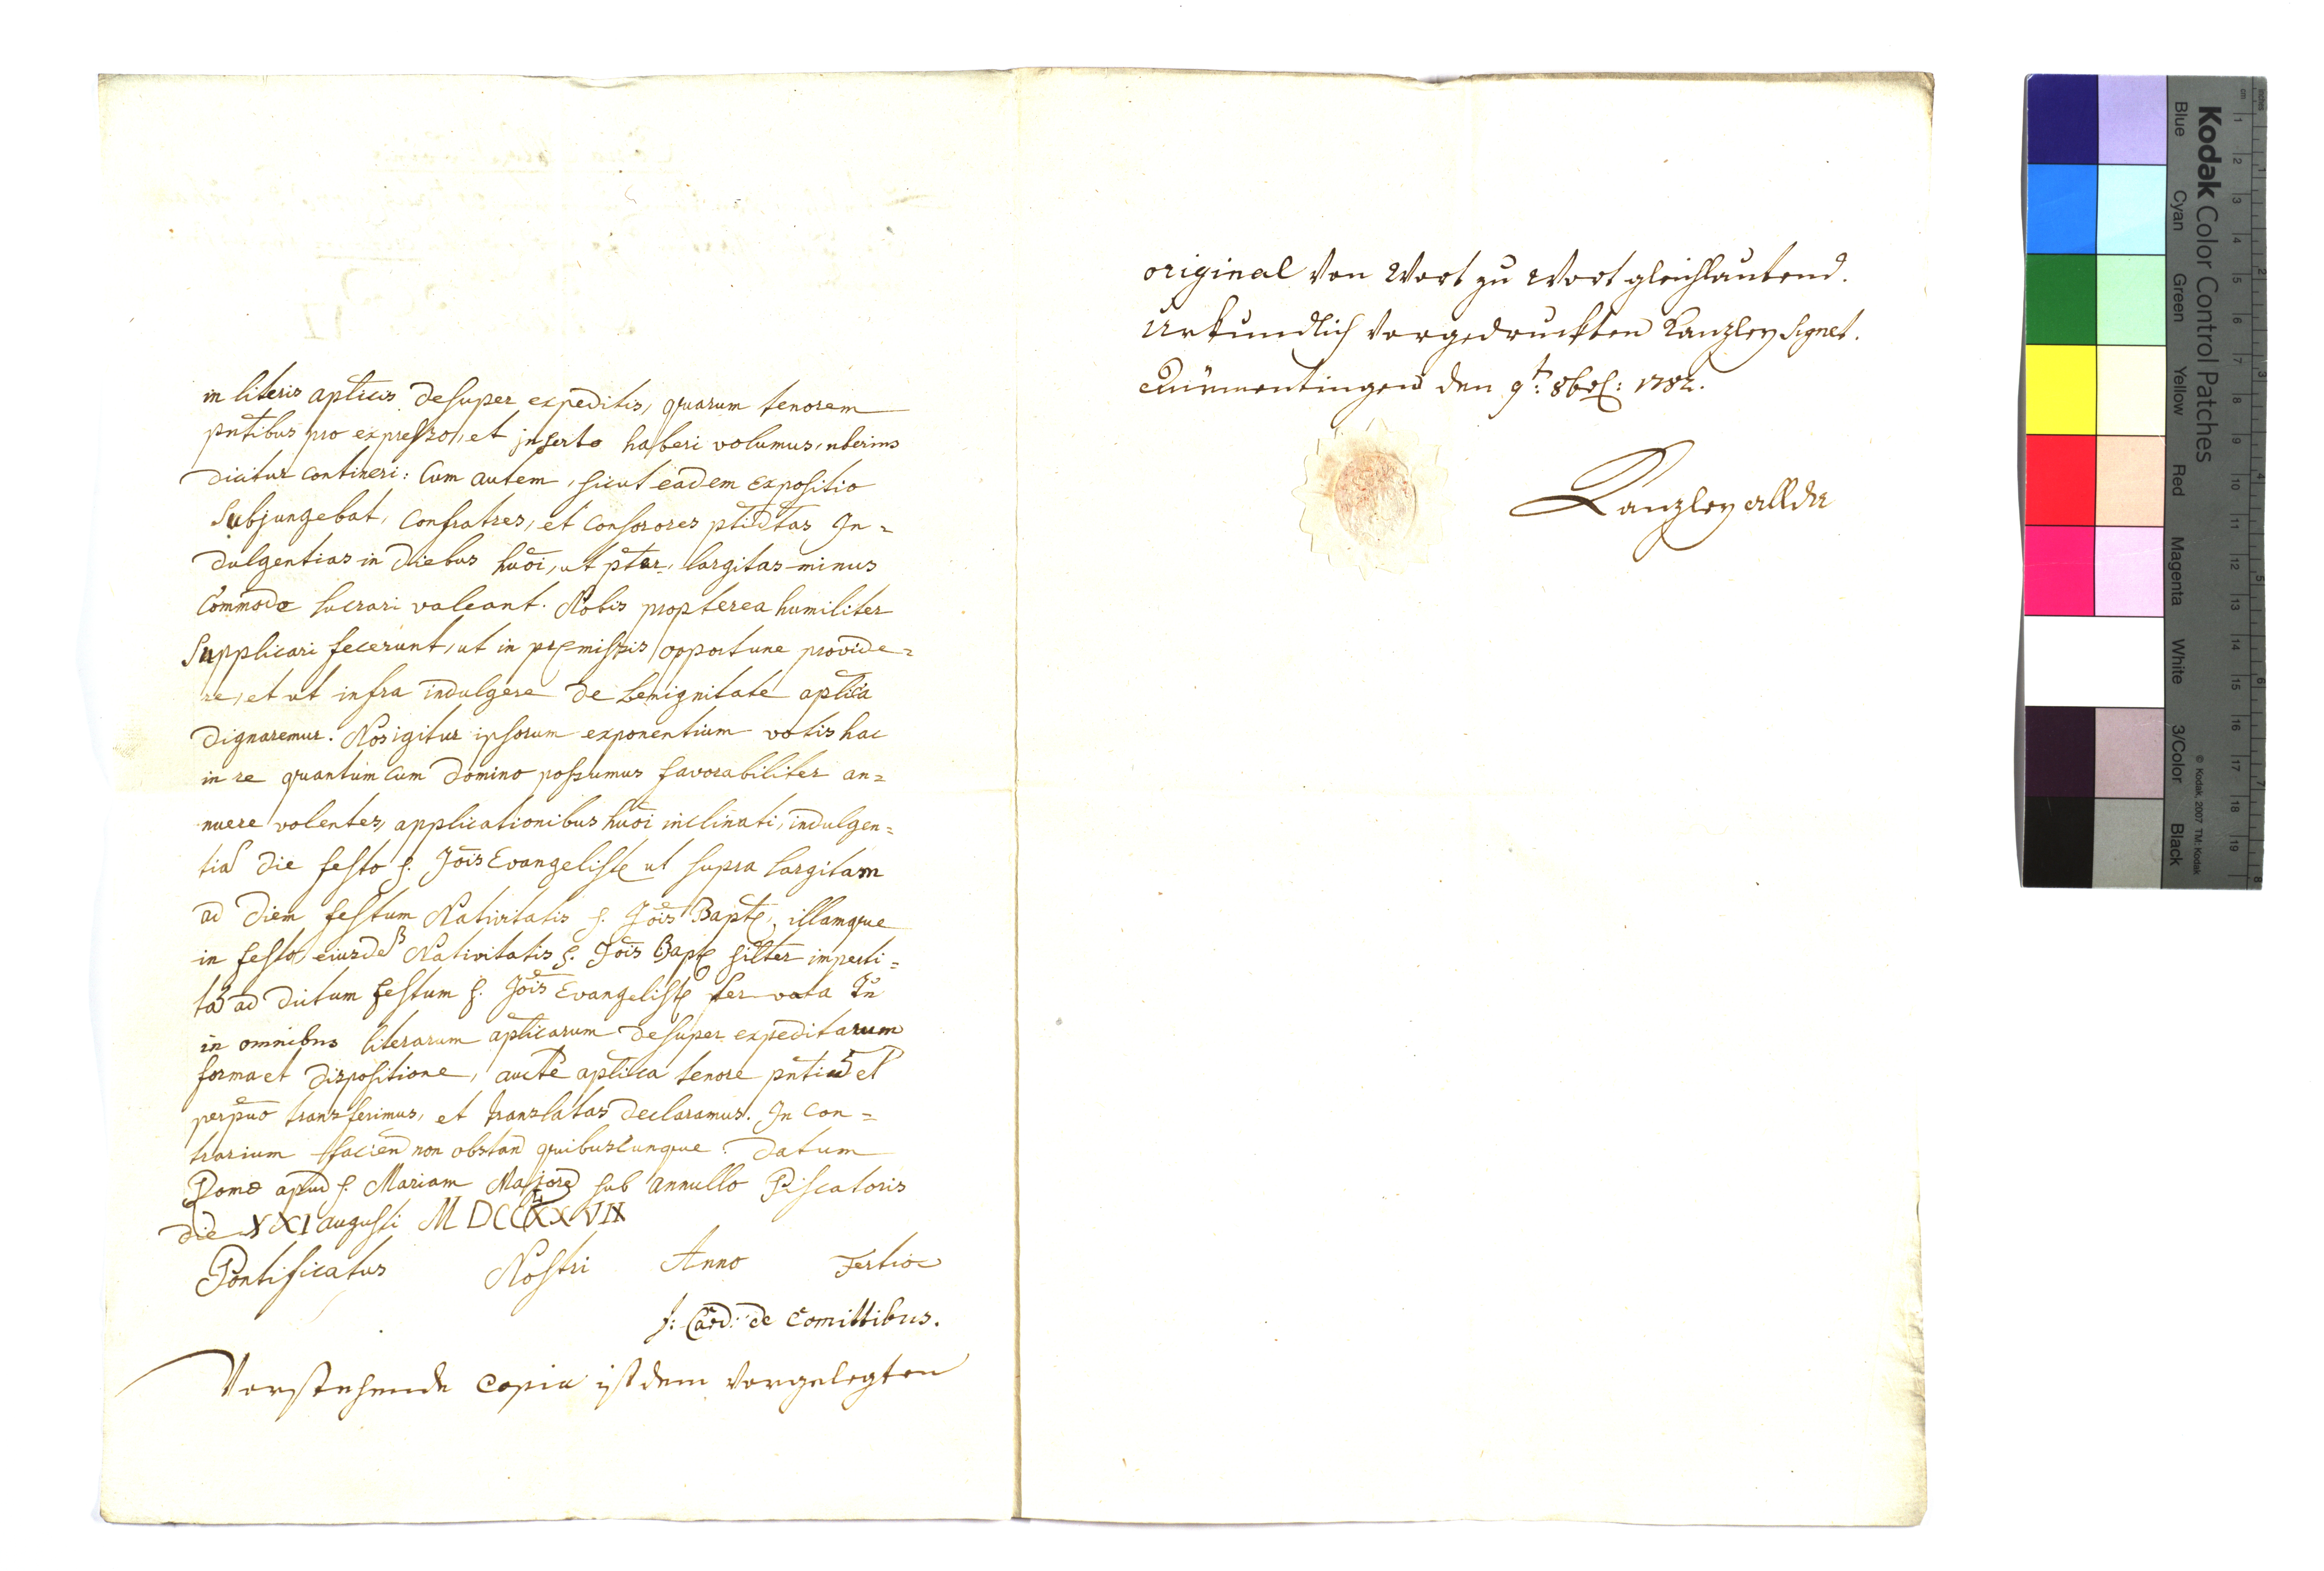 in literis aplicis desuper expeditis, quarum tenorem
pntibus pro expresso, et inserto haberi volumus, uberius
dicitur contineri: Cum autem, sicut eadem expositio
Subjungebat, Confratres, et Consorores ptidtas In=
dulgentias in diebus huōi, ut ptur, largitas minus
Commode lucrari valeant. Nobis propterea humiliter
Supplicari fecerunt, ut in pręmissis opportune provide=
re, et ut infra indulgere de benignitate aplica
dignaremur. Nos igitur ipsorum exponentium votis hac
in re quantum cum Domino possumus favorabiliter an=
nuere volentes, applicationibus huōi inclinati, indulgen=
tiā die festo S. Jōis Evangelistę ut supra largitam
ad diem festum Nativitatis S. Jōis Baptę, illamque
in festo eiusdē Nativitatis S. Jōis Baptę silter imperti=
tā ad dictum festum S. Jōis Evangelistę
in omnibus literarum aplicarum desuper expeditarum
forma et dispositione, aucte aplica tenore pntiū et
perpuo transferimus, et translatas declaramus. In con=
trarium facien non obstan quibuscunque. Datum
Romæ apud S. Mariam Majorē sub Annullo Piscatoris
die XXI augusti
Pontificatus Nostri Anno Tertio
f: Card: de Comittibus.
Vorstehende Copia ist dem Vorgelegten
original Von Wort zu Wort gleichlautend.
Urkundlich Vorgedruckten Kanzley Signet.
den 9t: 8br: 1782.
Kanzley allda
Kodak Color Control Patches
Blue Cyan Green Yellow Red Magenta White 3/Color Black
© Kodak, 2007 TM: Kodak
cm 1 2 3 4 5 6 7 8 9 10 11 12 13 14 15 16 17 18 19
inches 1 2 3 4 5 6 7 8